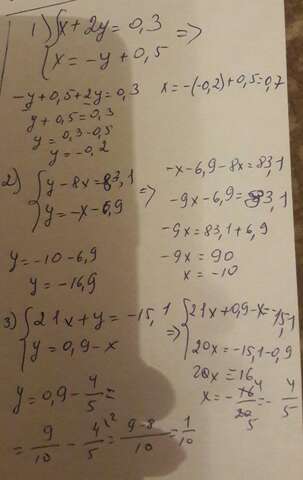 1) { x + 2y = 0,3 =>
{ x = -y + 0,5
-y + 0,5 + 2y = 0,3
y + 0,5 = 0,3
y = 0,3 - 0,5
y = -0,2
x = -(-0,2) + 0,5 = 0,7
2) { y - 8x = 83,1 =>
{ y = -x - 6,9
-x - 6,9 - 8x = 83,1
-9x - 6,9 = 83,1
-9x = 83,1 + 6,9
-9x = 90
x = -10
y = -10 - 6,9
y = -16,9
3) { 21x + y = -15,1 =>
{ y = 0,9 - x
{ 21x + 0,9 - x = -15,1
20x = -15,1 - 0,9
20x = 16
x = - 16/20 4/5 = - 4/5
y = 0,9 - 4/5 =
= 9/10 - 4/5 \2 = 9-8/10 = 1/10